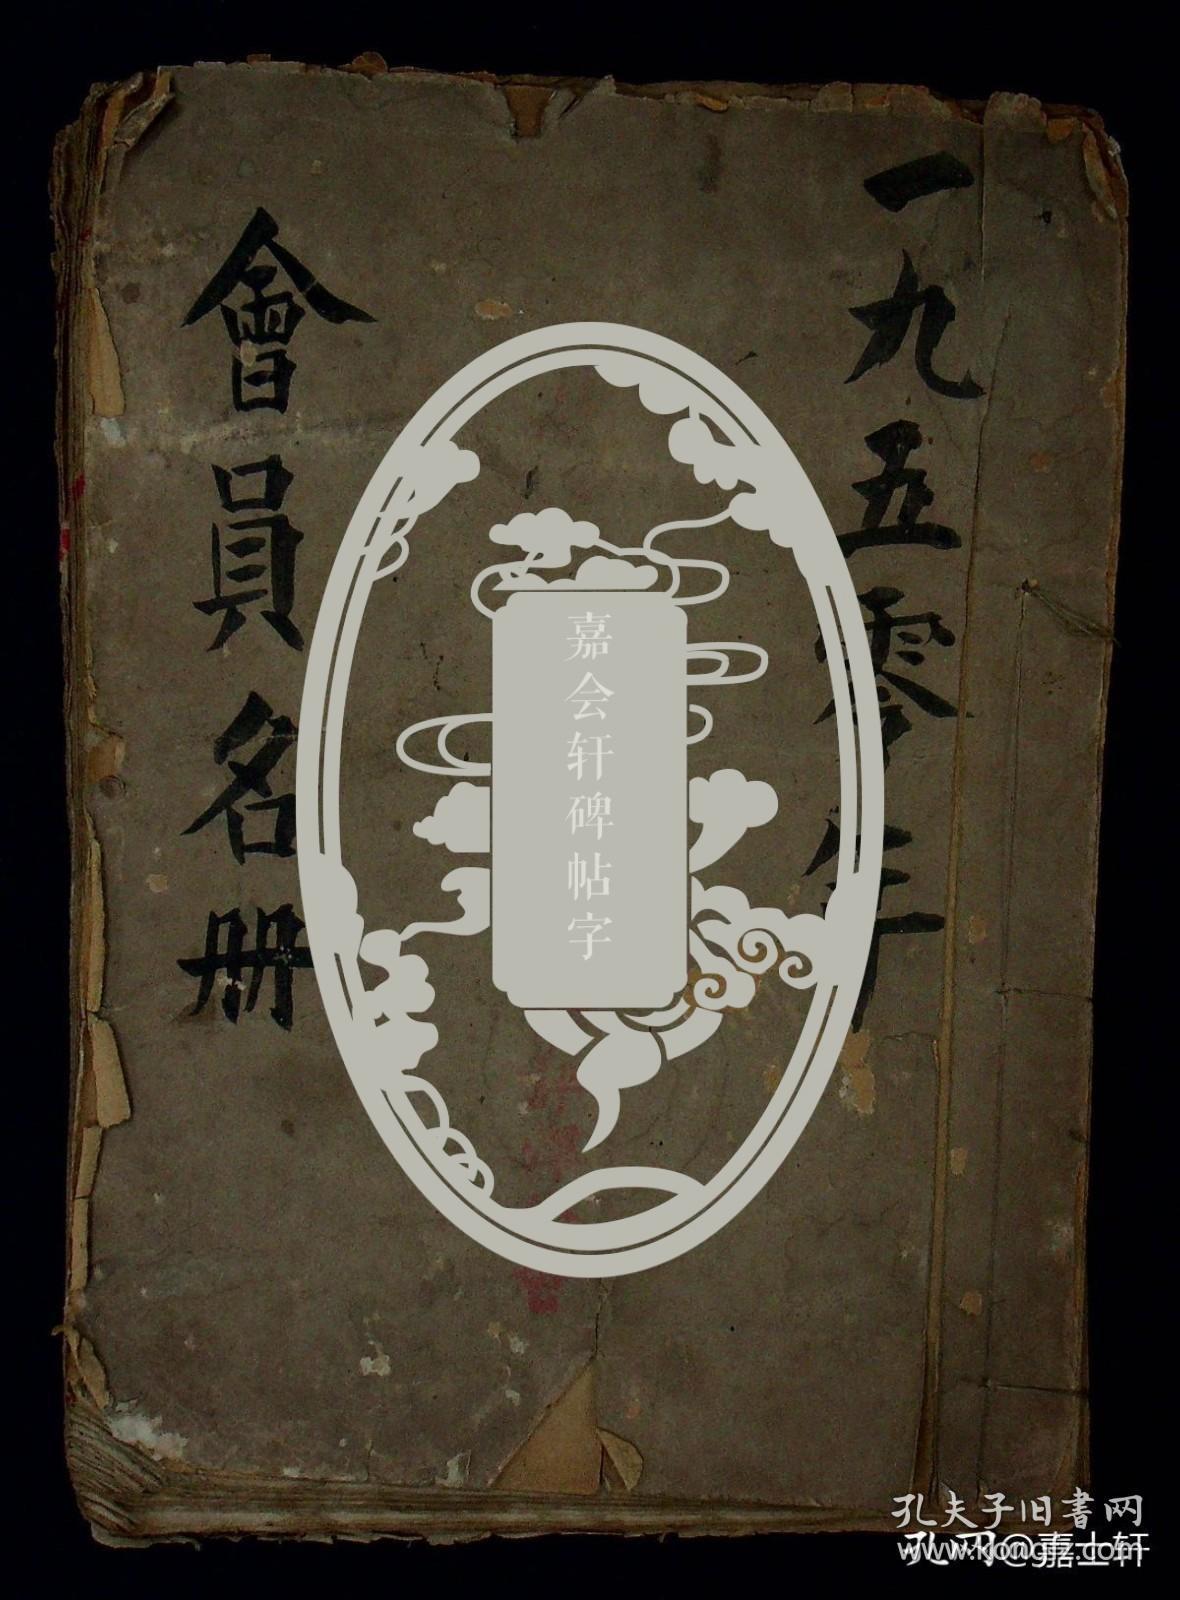 一九五零年
會員名册
嘉会轩碑帖字
孔夫子旧書网
www.kongfz.com
孔网@嘉士轩